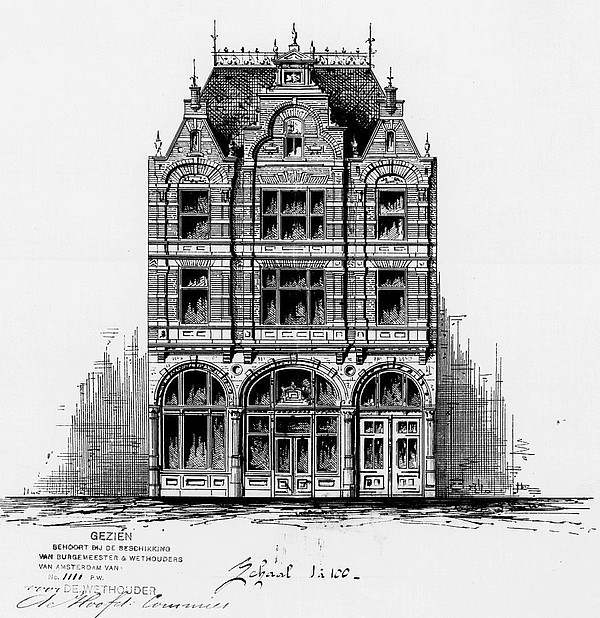 GEZIEN
BEHOORT BIJ DE BESCHIKKING
VAN BURGEMEESTER & WETHOUDERS
VAN AMSTERDAM VAN
No. 1111 P.W.
voor DE WETHOUDER
de Hoofd Commies
Schaal 1 à 100 -